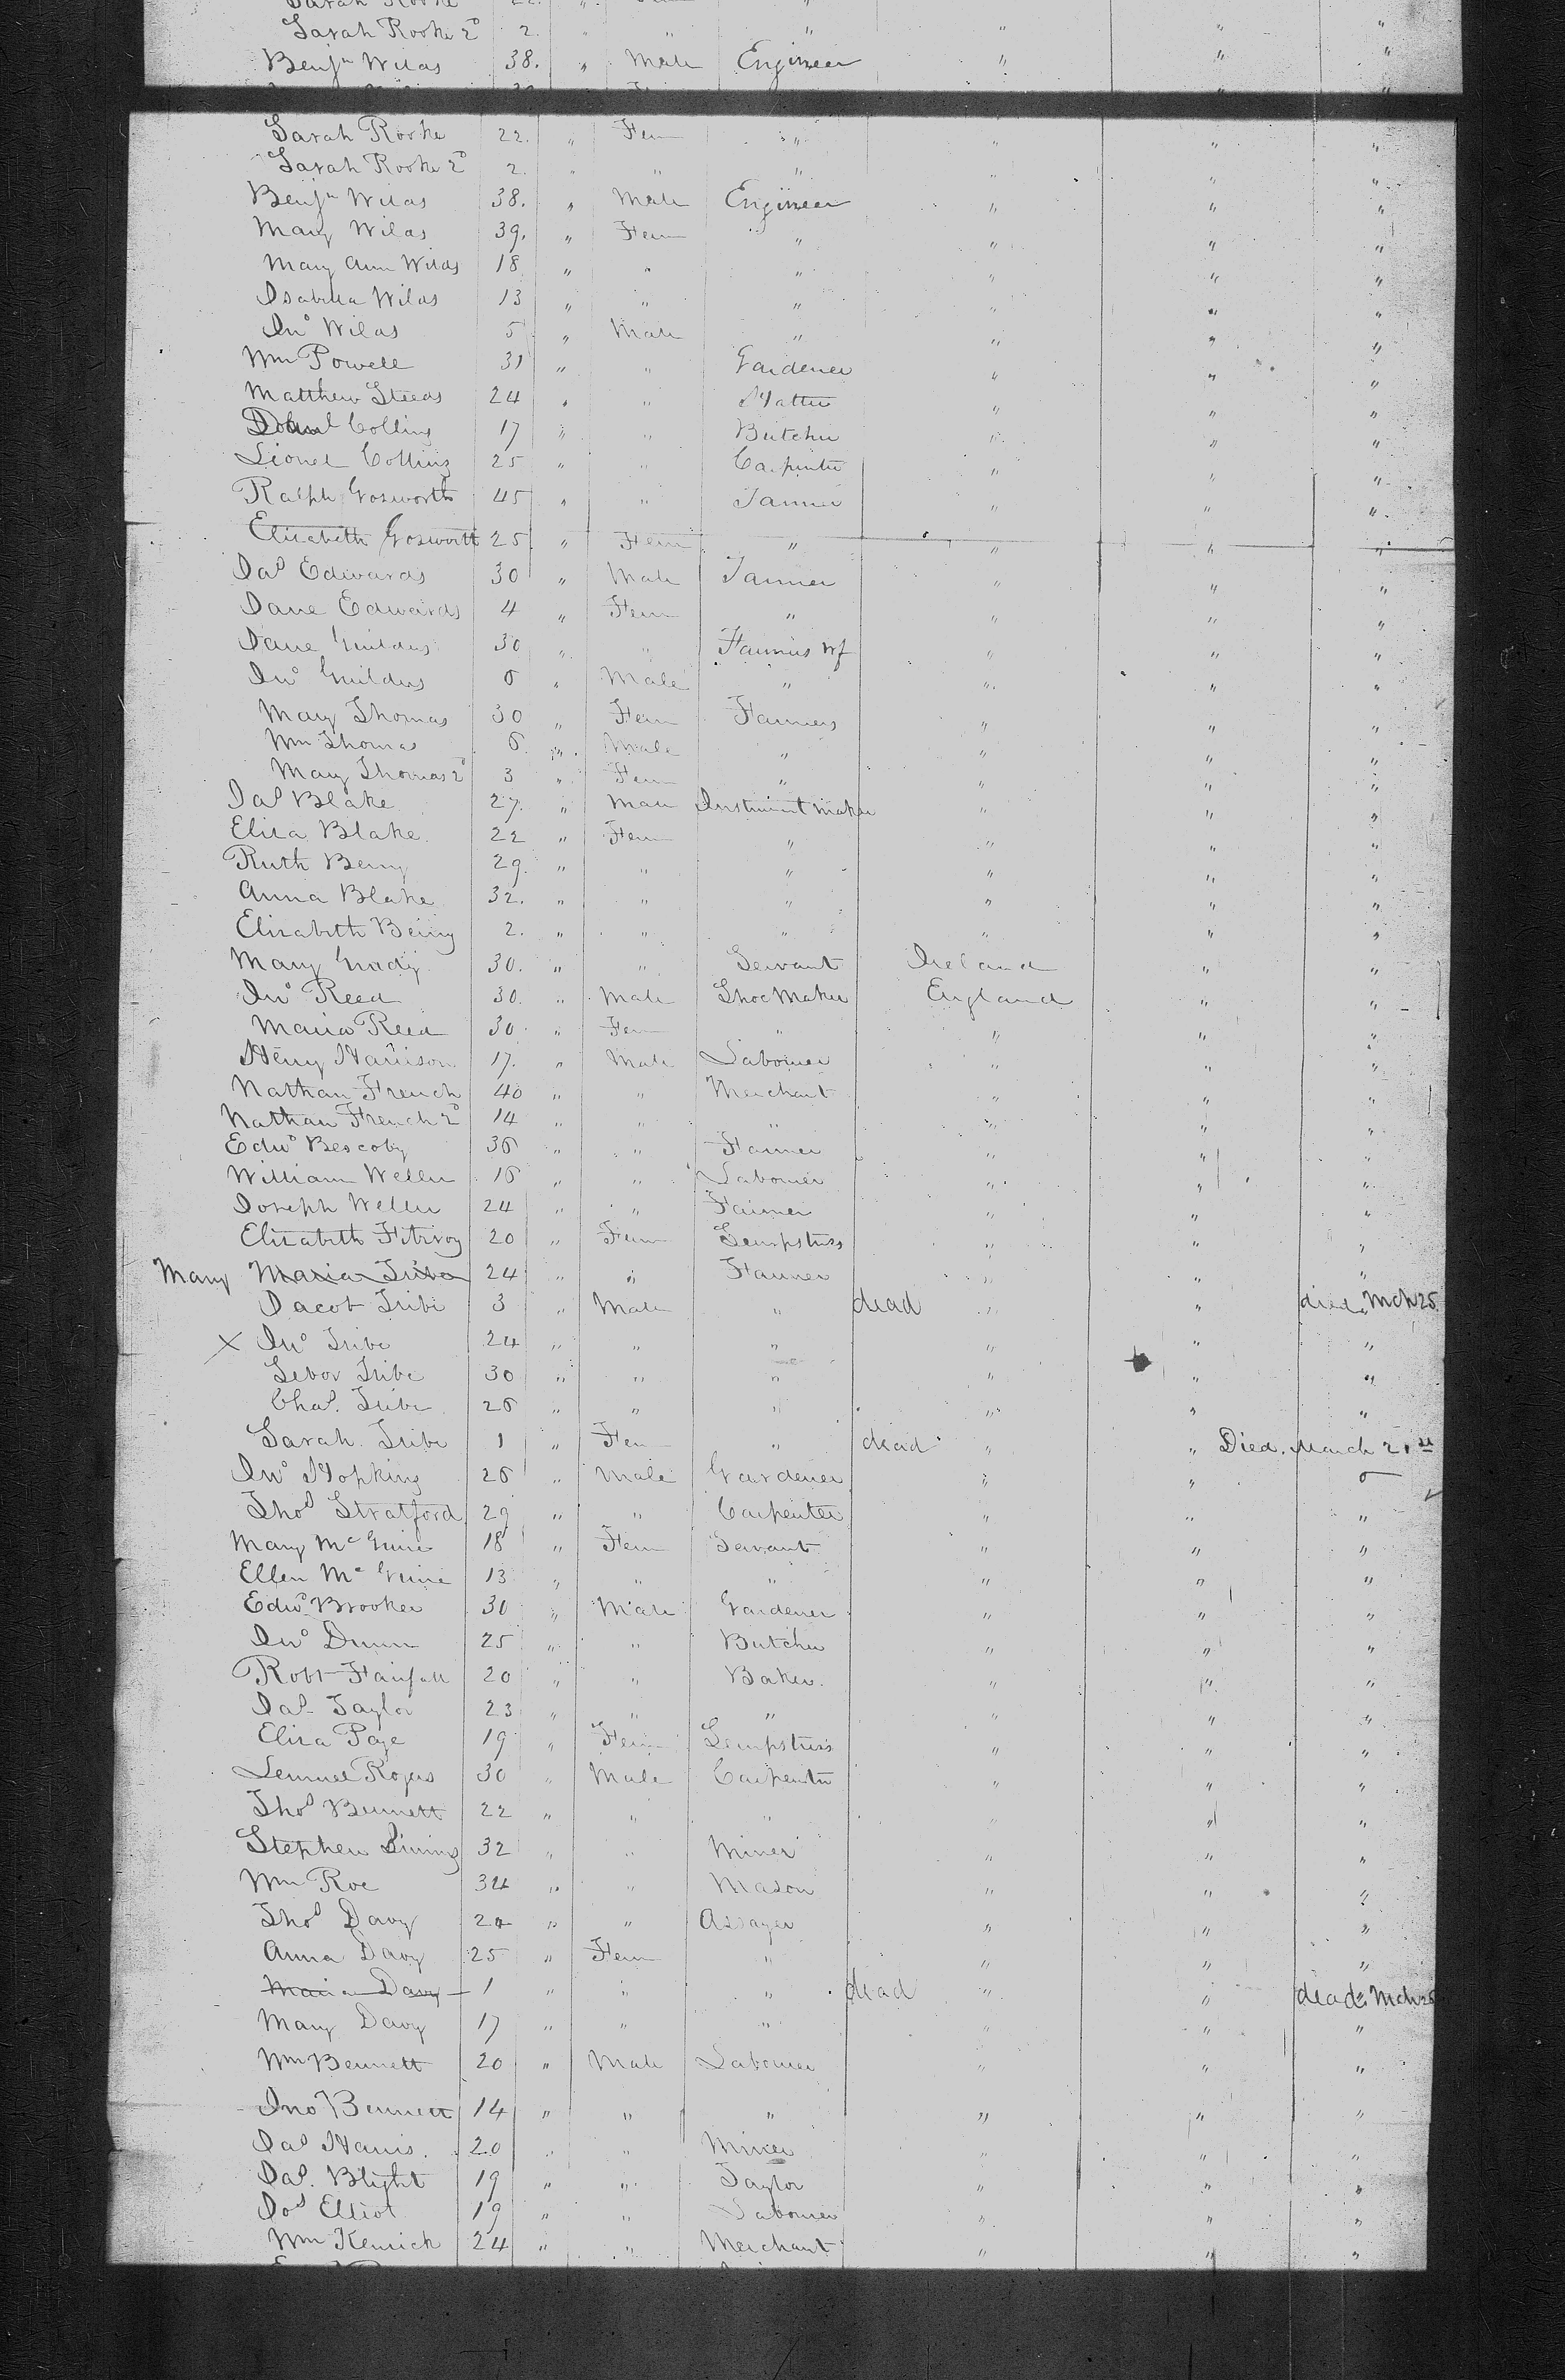 Sarah Rooke 22. " Fem "
Sarah Rooke 2d 2. " " " " " "
Benjn Wilds 38. " Male Engineer " " "
Sarah Rooke 22. " Fem " " " "
Sarah Rooke 2d 2. " " " " " "
Benjn Wilds 38. " Male Engineer " " "
Mary Wilds 39. " Fem " " " "
Mary Ann Wilds 18 " " " " " "
Isabella Wilds 13 " " " " " "
Jno Wilds 5 " Male " " " "
Wm Powell 31 " " Gardener " " "
Matthew Steeds 24 " " Hatter " " "
Collins 17 " " Butcher " " "
Lionel Collins 25 " " Carpenter " " "
Ralph Gosworth 45 " " Tanner " " "
Elizabeth Gosworth 25 " Fem " " " "
Jas Edwards 30 " Male Tanner " " "
Jane Edwards 4 " Fem " " " "
Jane Guilders 30 " " Farmers wf " " "
Jno Guilders 6 " Male " " " "
Mary Thomas 30 " Fem Farmers " " "
Wm Thomas 6. " Male " " " "
Mary Thomas 2d 3 " Fem " " " "
Jas Blake 27. " Male Instrument maker " " "
Eliza Blake 22 " Fem " " " "
Ruth Berry 29. " " " " " "
Anna Blake 32. " " " " " "
Elizabeth Berry 2. " " " " " "
Mary Grady 30. " " Servant Ireland " "
Jno Reed 30. " Male Shoe Maker England " "
Maria Reed 30. " Fem " " " "
Henry Harrison 17. " Male Labourer " " "
Nathan French 40 " " Merchant " " "
Nathan French 2d 14 " " " " " "
Edwd Bescoby 36 " " Farmer " " "
William Weller 16 " " Labourer " " "
Joseph Weller 24 " " Farmer " " "
Elizabeth Fitzroy 20 " Fem Sempstress " " "
Mary Maria Tribe 24 " " Farmer " " "
Jacob Tribe 3 " Male " dead " " died Mch 25
X Jno Tribe 24 " " " " " "
Tribe 30 " " " " " "
Chas. Tribe 26 " " " " " "
Sarah Tribe 1 " Fem " dead " " Died. March 21st
Jno Hopkins 26 " Male Gardener " "
Thos Stratford 29 " " Carpenter " " "
Mary McGuire 18 " Fem Servant " " "
Ellen McGuire 13 " " " " " "
Edwd Brooker 30 " Male Gardener " " "
Jno Dunn 25 " " Butcher " " "
Robt Fairfall 20 " " Baker " " "
Jas. Taylor 23 " " " " " "
Eliza Page 19 " Fem Sempstress " " "
Lemuel Rogers 30 " Male Carpenter " " "
Thos Bennett 22 " " " " " "
Stephen 32 " " Miner " " "
Wm Roe 34 " " Mason " " "
Thos Davy 24 " " Assayer " " "
Anna Davy 25 " Fem " " " "
Maria Davy 1 " " " dead " " dead Mch 26
Mary Davy 17 " " " " " "
Wm Bennett 20 " Male Labourer " " "
Jno Bennett 14 " " " " " "
Jas Harris. 20 " " Miner " " "
Jas. Blight 19 " " Taylor " " "
Jos Elliot 19 " " Labourer " " "
Wm Kenrick 24 " " Merchant " " "